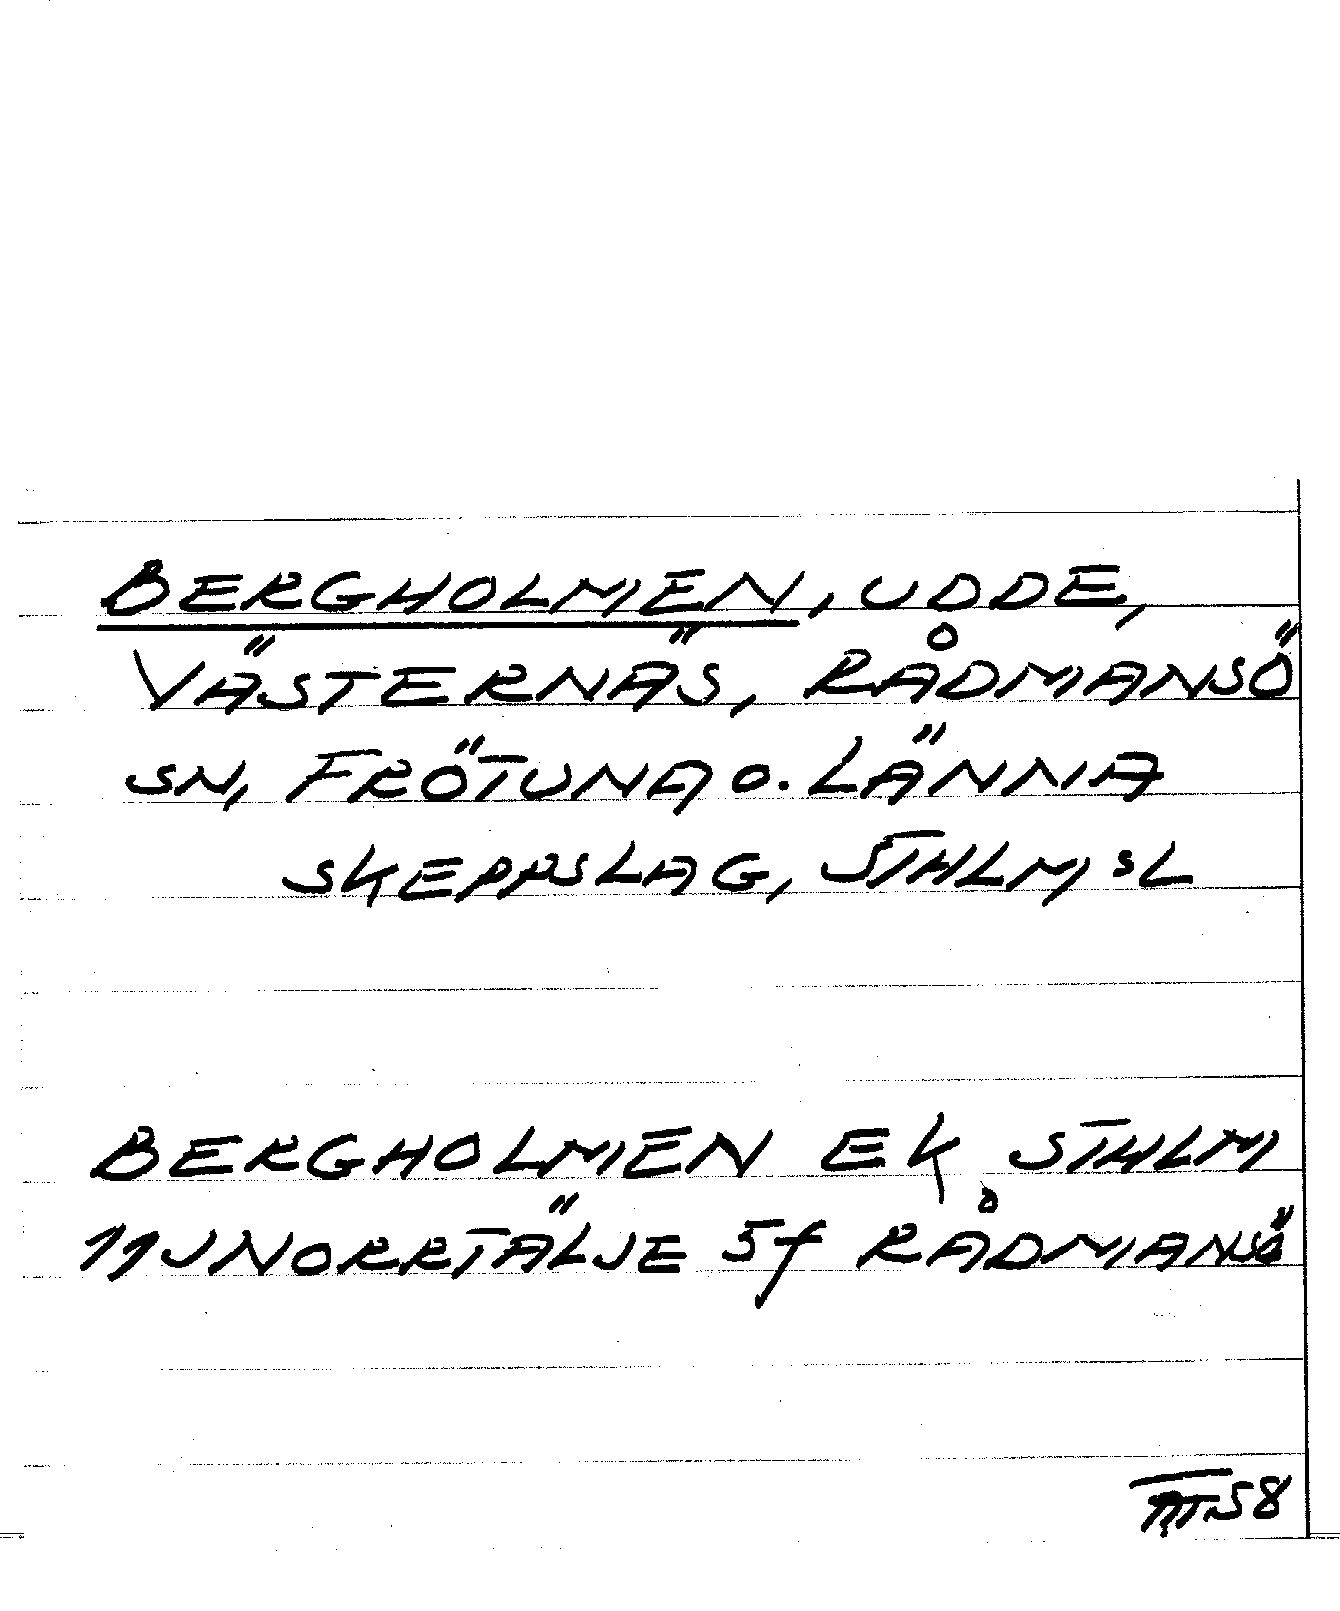 BERGHOLMEN, UDDE,
VÄSTERNÄS, RÅDMANSÖ
SN, FRÖTUNA O. LÄNNA
SKEPPSLAG, STHLMSL
BERGHOLMEN EK STHLM
11J NORRTÄLJE 5f RÅDMANSÖ
58